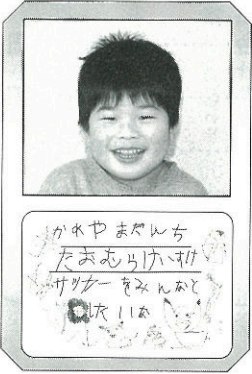 かれやまだんち
たおむらけいすけ
サッカーをみんなと
したいな